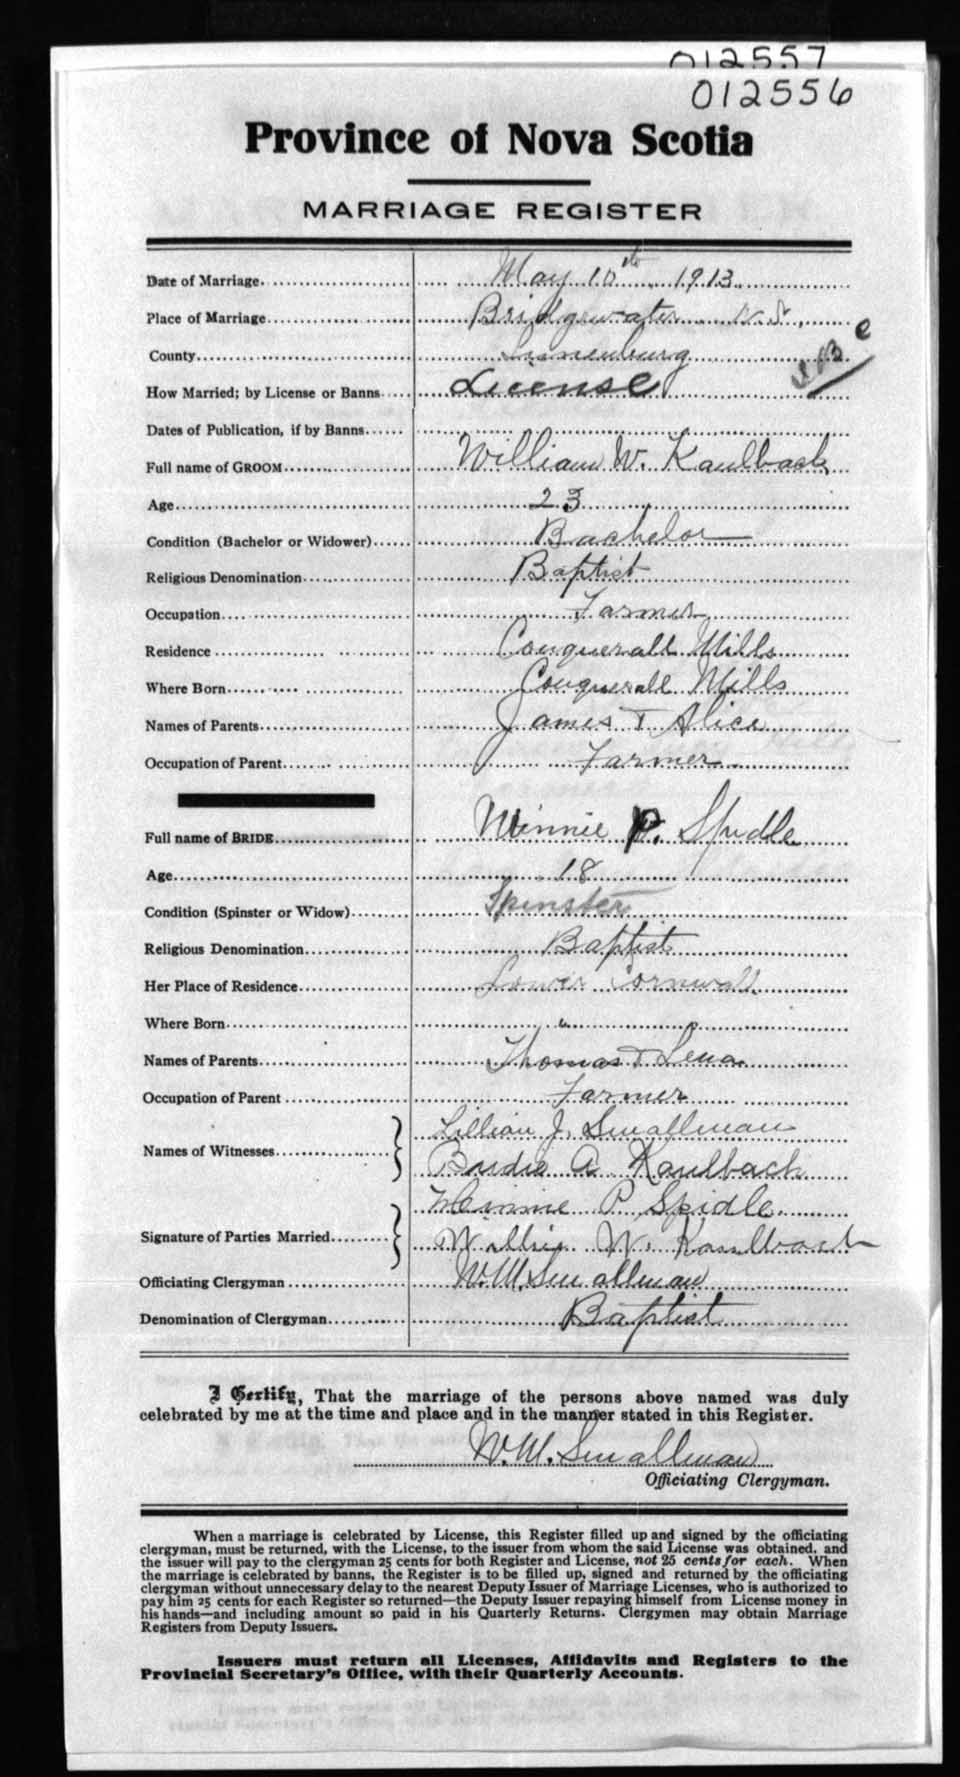 012557
012556
Province of Nova Scotia
MARRIAGE REGISTER
Date of Marriage May 10th 1913
Place of Marriage Bridgewater N.S.
County Lunenburg
How Married; by License or Banns License
Dates of Publication, if by Banns
Full name of GROOM William W. Kaulback
Age 23
Condition (Bachelor or Widower) Bachelor
Religious Denomination Baptist
Occupation Farmer
Residence Conquerall Mills
Where Born Conquerall Mills
Names of Parents James + Alice
Occupation of Parent Farmer
Full name of BRIDE Minnie P. Spidle
Age 18
Condition (Spinster or Widow) Spinster
Religious Denomination Baptist
Her Place of Residence Lower Cornwall
Where Born " "
Names of Parents Thomas + Lena
Occupation of Parent Farmer
Names of Witnesses Lillian J. Smallman
A. Kaulback
Signature of Parties Married Minnie P Spidle
Willie W. Kaulback
Officiating Clergyman W.M. Smallman
Denomination of Clergyman Baptist
I Certify, That the marriage of the persons above named was duly
celebrated by me at the time and place and in the manner stated in this Register.
W.M. Smallman
Officiating Clergyman.
When a marriage is celebrated by License, this Register filled up and signed by the officiating
clergyman, must be returned, with the License, to the issuer from whom the said License was obtained, and
the issuer will pay to the clergyman 25 cents for both Register and License, not 25 cents for each. When
the marriage is celebrated by banns, the Register is to be filled up, signed and returned by the officiating
clergyman without unnecessary delay to the nearest Deputy Issuer of Marriage Licenses, who is authorized to
pay him 25 cents for each Register so returned—the Deputy Issuer repaying himself from License money in
his hands—and including amount so paid in his Quarterly Returns. Clergymen may obtain Marriage
Registers from Deputy Issuers.
Issuers must return all Licenses, Affidavits and Registers to the
Provincial Secretary's Office, with their Quarterly Accounts.